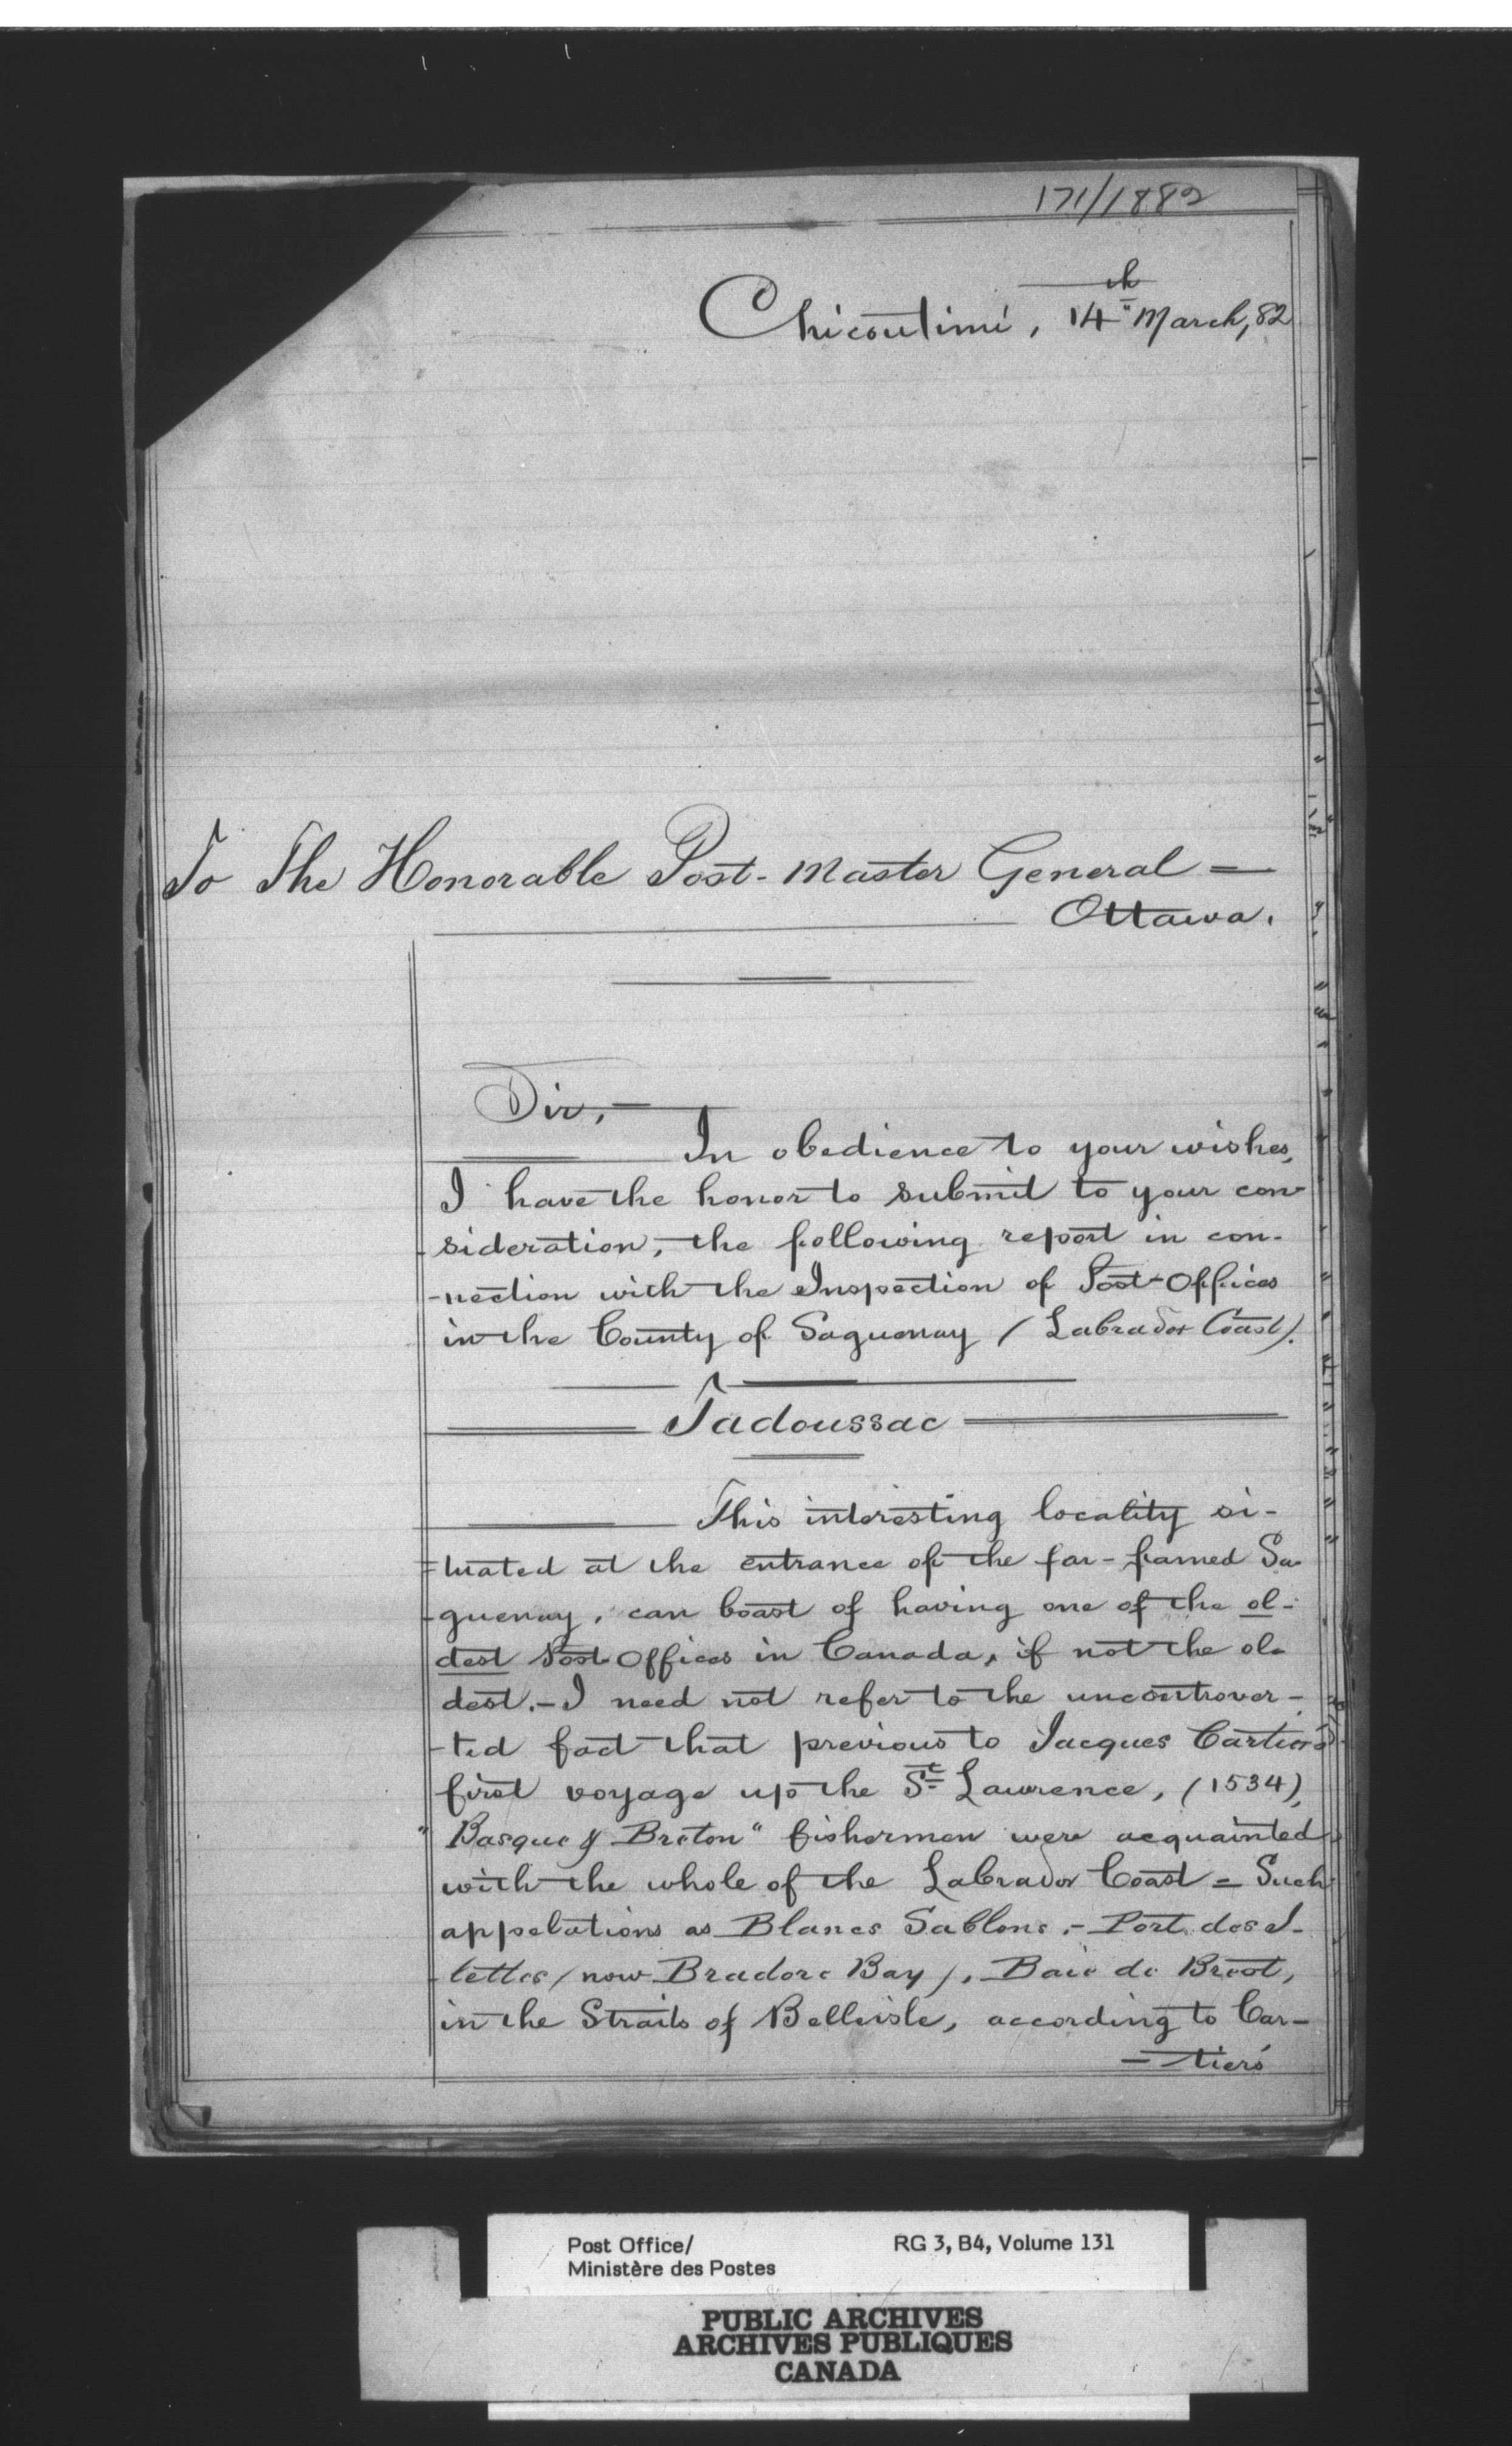 171/1882
Chicoutimi, 14th March, 82
To The Honorable Post-Master General =
Ottawa.
Sir, —
In obedience to your wishes,
I have the honor to submit to your con-
sideration, the following report in con-
-nection with the Inspection of Post-Offices
in the County of Saguenay (Labrador Coast).
Tadoussac
This interesting locality si-
-tuated at the entrance of the far-famed Sa-
-guenay, can boast of having one of the ol-
dest Post Offices in Canada, if not the ol-
dest. - I need not refer to the uncontrover-
-ted fact that previous to Jacques Cartier's
first voyage up the St Lawrence, (1534),
"Basque & Breton" fishermen were acquainted
with the whole of the Labrador Coast = Such
appelations as Blancs Sablons, - Port des I-
-lettes (now Bradore Bay), Baie de Brest,
in the Straits of Belleisle, according to Car-
-tier's
Post Office/
Ministère des Postes
RG 3, B4, Volume 131
PUBLIC ARCHIVES
ARCHIVES PUBLIQUES
CANADA